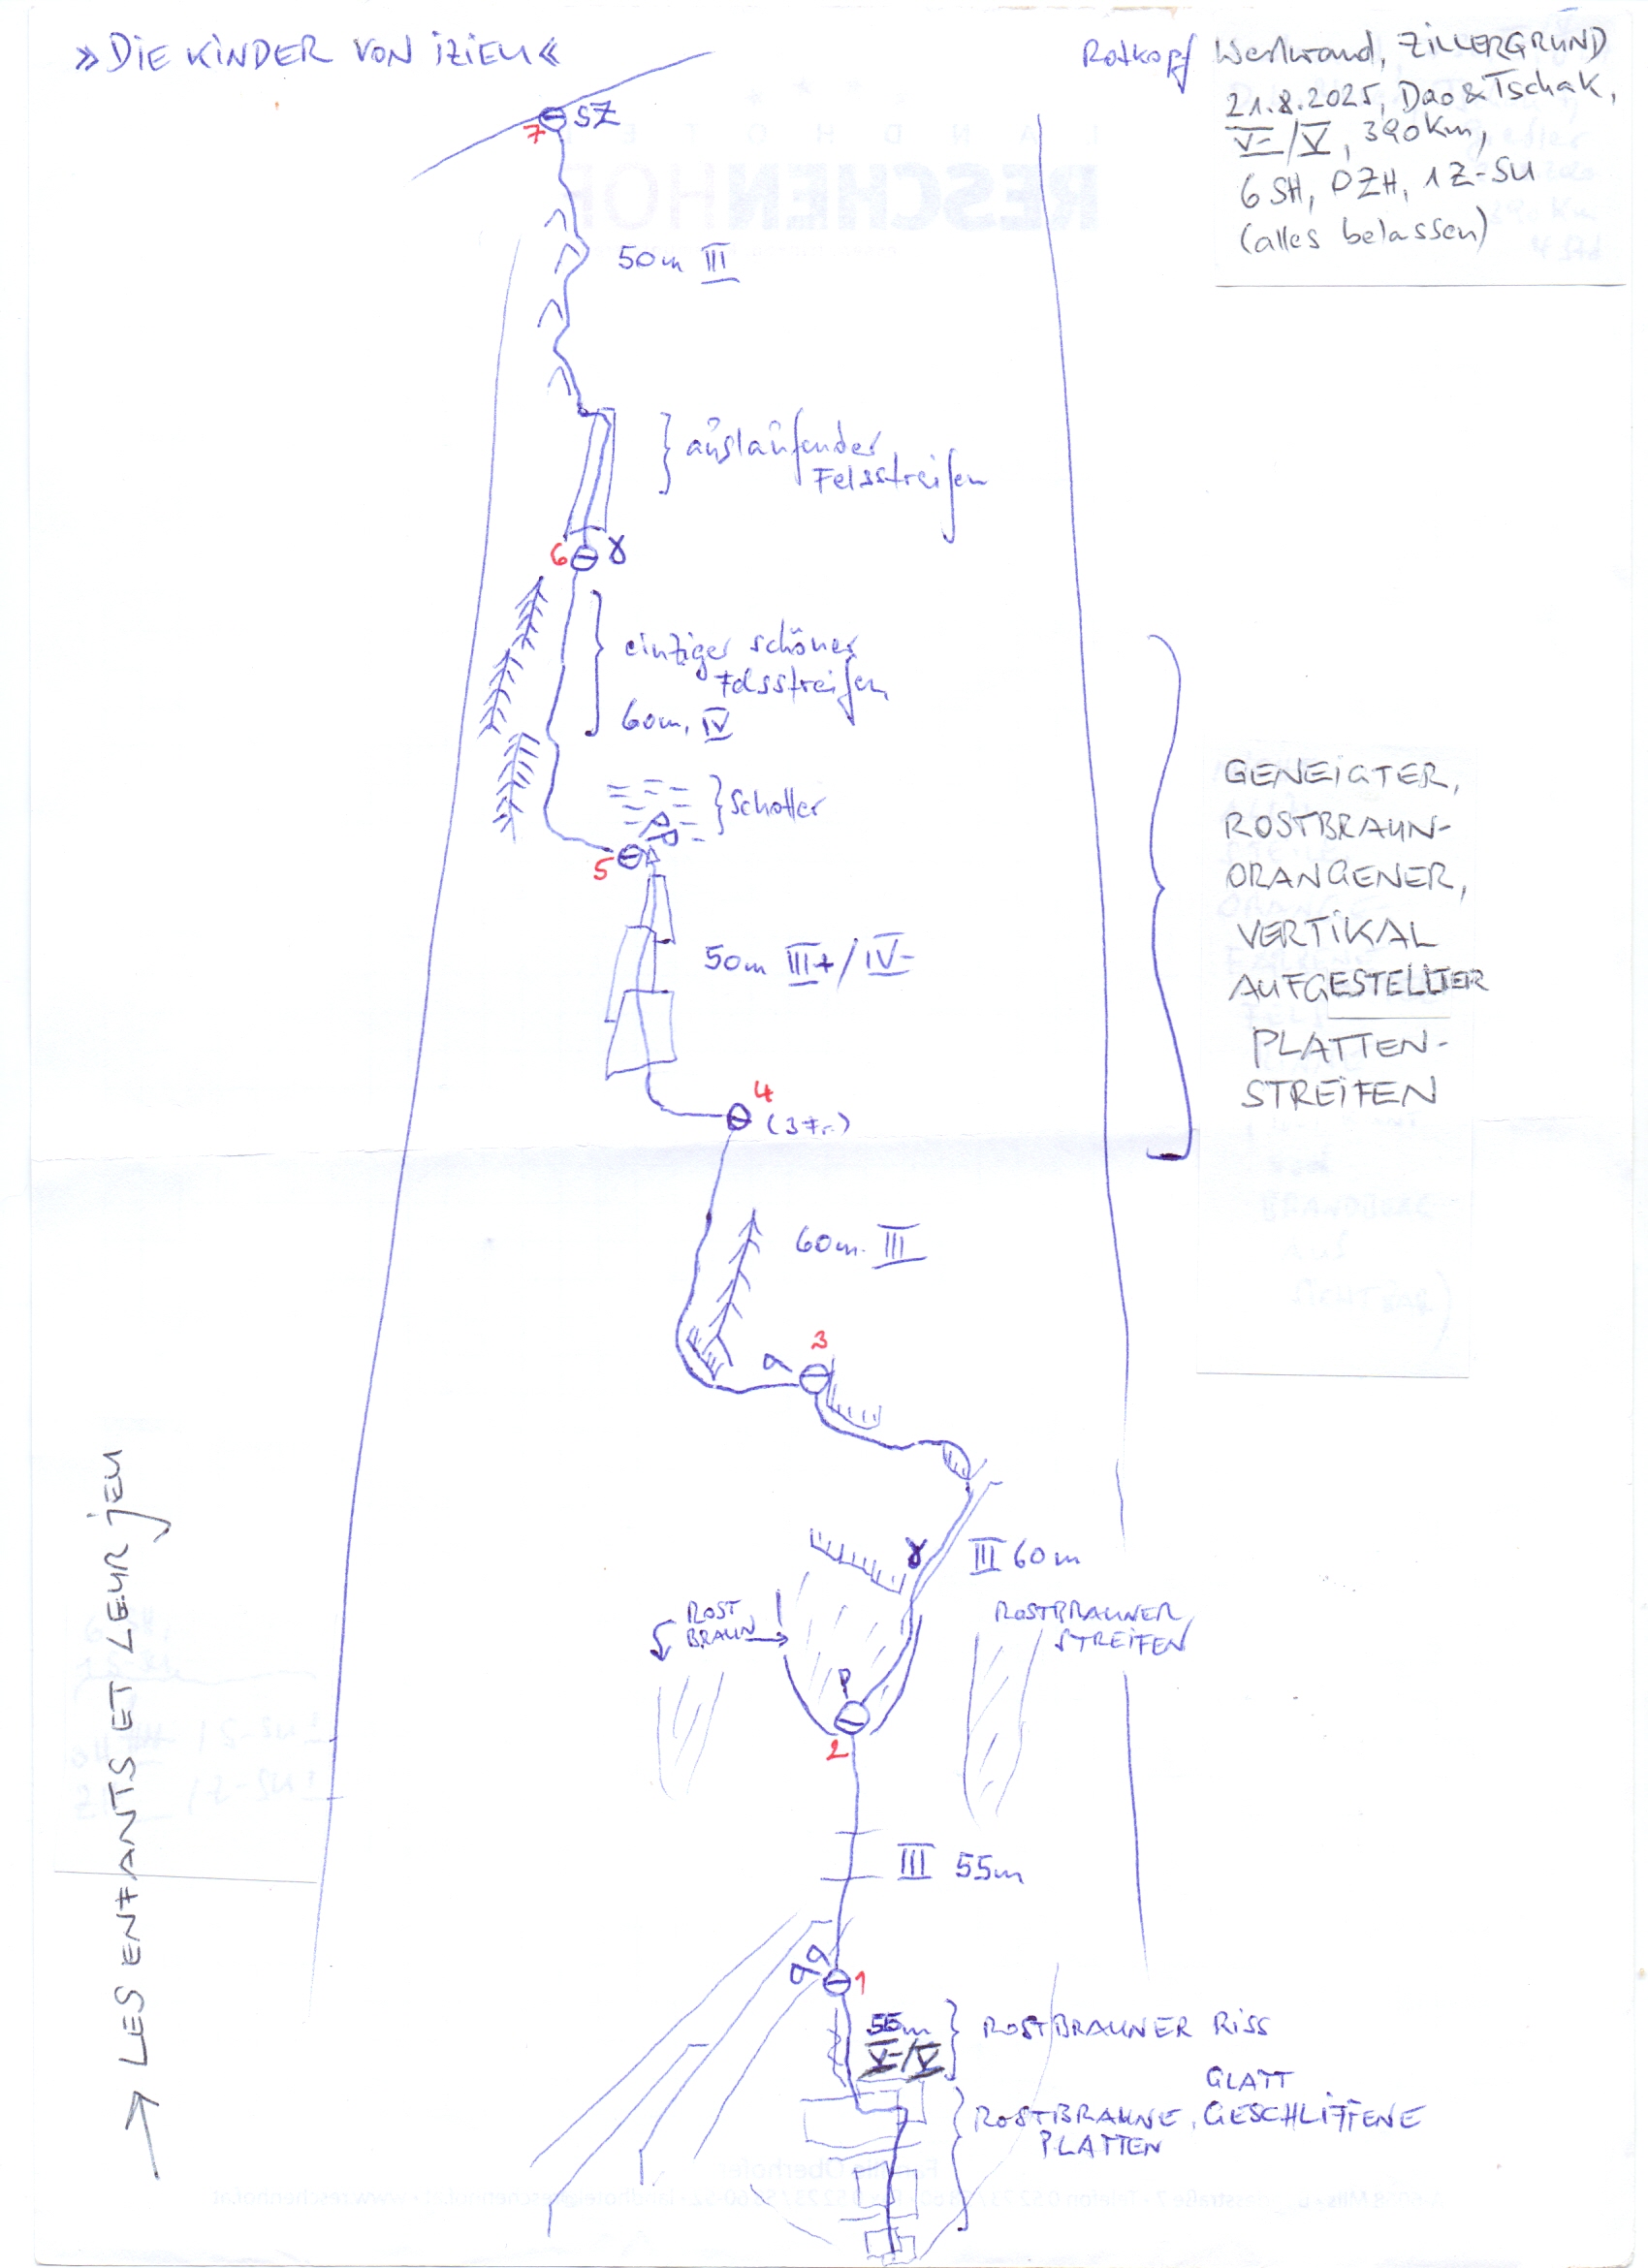 »DiE KiNDER VON iZiEU«
Rotkopf Westwand, ZiLLERGRUND
21.8.2025, Dao & Tschak,
V-/V, 390Km,
6 SH, 0ZH, 1Z-SU
(alles belassen)
7 SZ
50m III
auslaufender
Felsstreifen
6
einziger schöner
Felsstreifen
60m, IV
Schotter
5
50m III+/IV-
GENEiGTER,
ROSTBRAUN-
ORANGENER,
VERTiKAL
AUFGESTELLTER
PLATTEN-
STREiFEN
4
60m III
3
III 60m
ROST
BRAUN
ROSTBRAUNER
STREiFEN
2
III 55m
1
55m
V-/V
ROSTBRAUNER RiSS
GLATT
ROSTBRAUNE, GESCHLiFFENE
PLATTEN
→ LES ENFANTS ET LEUR jEU
RESCHENHOF